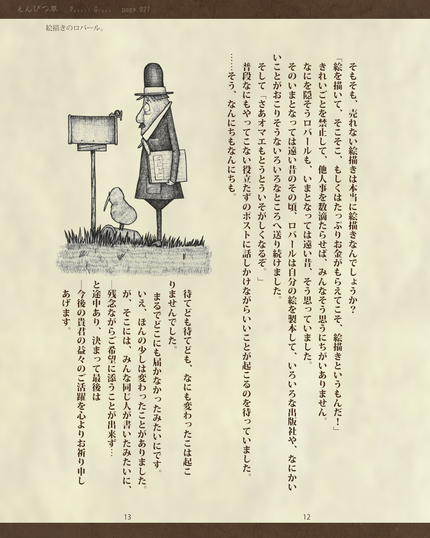 えんぴつ草 Pencil Grass page 027
絵描きのロバール。
そもそも、売れない絵描きは本当に絵描きなんでしょうか？
「絵を描いて、そこそこ、もしくはたっぷりお金がもらえてこそ、絵描きというもんだ！」
きれいごとを禁止して、他人事を数滴たらせば、みんなそう思うにちがいありません。
なにを隠そうロバールも、いまとなっては遠い昔、そう思っていました。
そのいまとなっては遠い昔のその頃、ロバールは自分の絵を製本して、いろいろな出版社や、なにかい
いことがおこりそうないろいろなところへ送り続けました。
そして「さあオマエもとうとういそがしくなるぞ。」
普段なにもやってこない役立たずのポストに話しかけながらいいことが起こるのを待っていました。
……そう、なんにちもなんにちも。
待てども待てども、なにも変わったことは起こ
りませんでした。
まるでどこにも届かなかったみたいにです。
いえ、ほんの少しは変わったことがありました。
が、そこには、みんな同じ人が書いたみたいに、
―残念ながらご希望に添うことが出来ず…
と途中あり、決まって最後は
―今後の貴君の益々のご活躍を心よりお祈り申し
あげます。
13
12